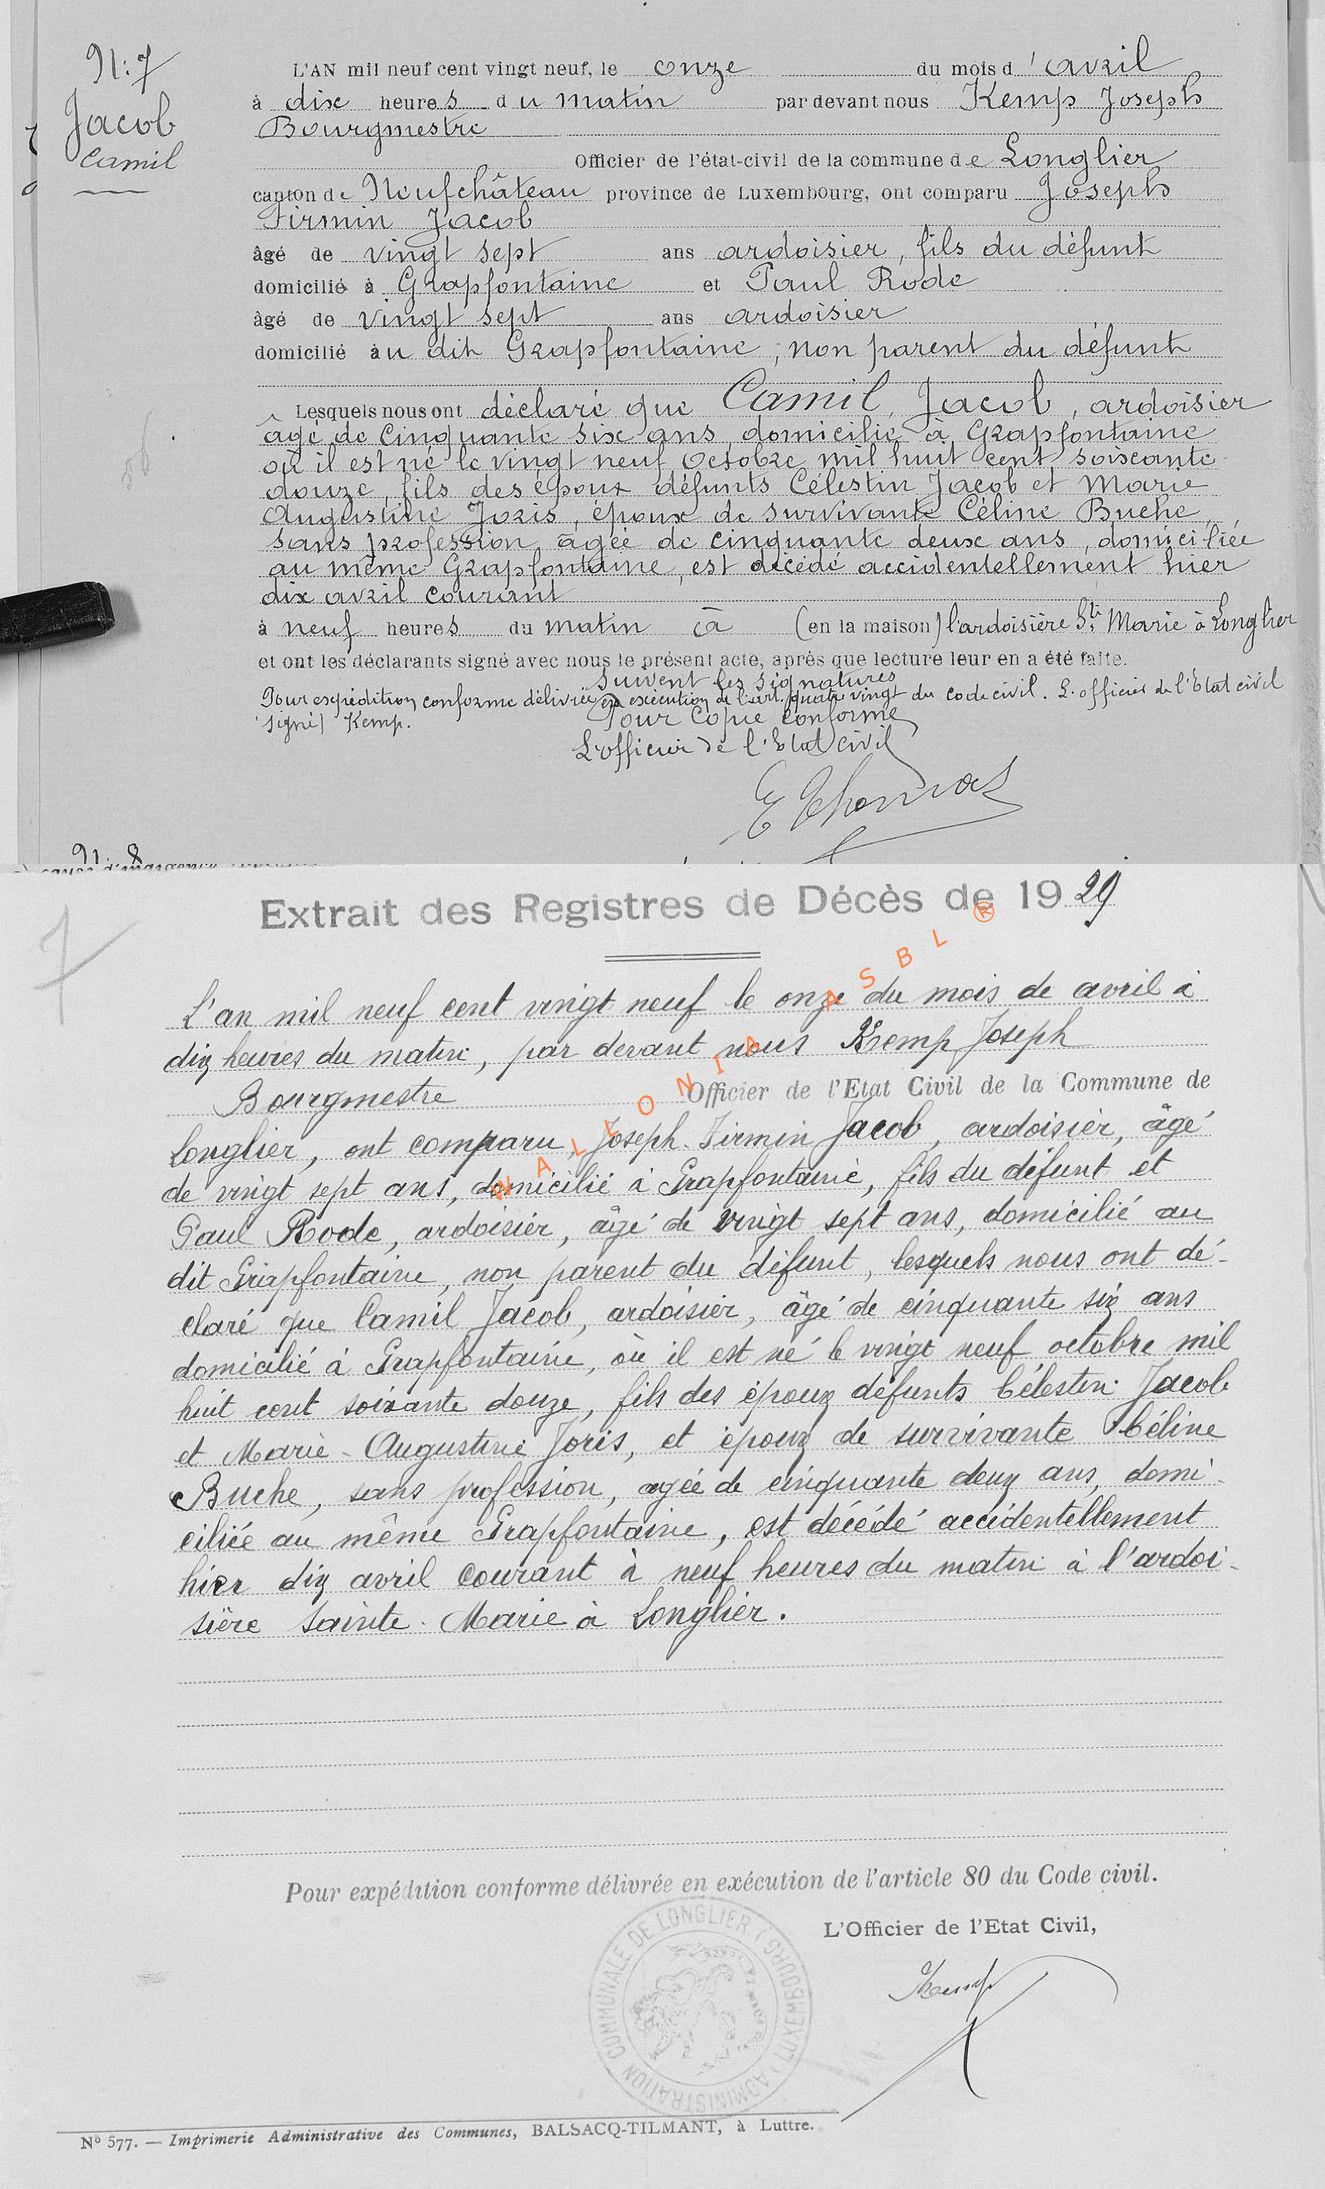 N: 7
Jacob
Camil
L'AN mil neuf cent vingt neuf, le onze du mois d'avril
à dix heures du matin par devant nous Kemp Joseph
Bourgmestre
Officier de l'état-civil de la commune de Longlier
canton de Neufchâteau province de Luxembourg, ont comparu Joseph
Firmin Jacob
âgé de vingt sept ans ardoisier, fils du défunt
domicilié à Grapfontaine et Paul Rode
âgé de vingt sept ans ardoisier
domicilié au dit Grapfontaine, non parent du défunt
Lesquels nous ont déclaré que Camil Jacob, ardoisier
âgé de cinquante six ans, domicilié à Grapfontaine
où il est né le vingt neuf octobre mil huit cent soixante
douze, fils des époux défunts Célestin Jacob et Marie
Augustine Joris, époux de survivante Céline Buche,
sans profession, âgée de cinquante deux ans, domiciliée
au même Grapfontaine, est décédé accidentellement hier
dix avril courant
à neuf heures du matin à (en la maison) l'ardoisière Ste Marie à Longlier
et ont les déclarants signé avec nous le présent acte, après que lecture leur en a été faite.
suivent les signatures
Pour expédition conforme délivrée en exécution de l'art. quatre vingt du code civil. L'officier de l'Etat civil
signé) Kemp.
Pour Copie conforme
L'officier de l'Etat civil
E Thomas
N: 8
Extrait des Registres de Décès de 1929
7
L'an mil neuf cent vingt neuf le onze du mois de avril à
dix heures du matin, par devant nous Kemp Joseph
Bourgmestre Officier de l'Etat Civil de la Commune de
Longlier, ont comparu, Joseph Firmin Jacob, ardoisier, âgé
de vingt sept ans, domicilié à Grapfontaine, fils du défunt et
Paul Rode, ardoisier, âgé de vingt sept ans, domicilié au
dit Grapfontaine, non parent du défunt, lesquels nous ont dé-
claré que Camil Jacob, ardoisier, âgé de cinquante six ans
domicilié à Grapfontaine, où il est né le vingt neuf octobre mil
huit cent soixante douze, fils des époux défunts Célestin Jacob
et Marie-Augustine Joris, et époux de survivante Céline
Buche, sans profession, agée de cinquante deux ans, domi-
ciliée au même Grapfontaine, est décédé accidentellement
hier dix avril courant à neuf heures du matin à l'ardoi-
sière Sainte-Marie à Longlier.
WALLONIA ASBL ®
Pour expédition conforme délivrée en exécution de l'article 80 du Code civil.
L'Officier de l'Etat Civil,
Kemp
ADMINISTRATION COMMUNALE DE LONGLIER (LUXEMBOURG)
Nº 577. — Imprimerie Administrative des Communes, BALSACQ-TILMANT, à Luttre.